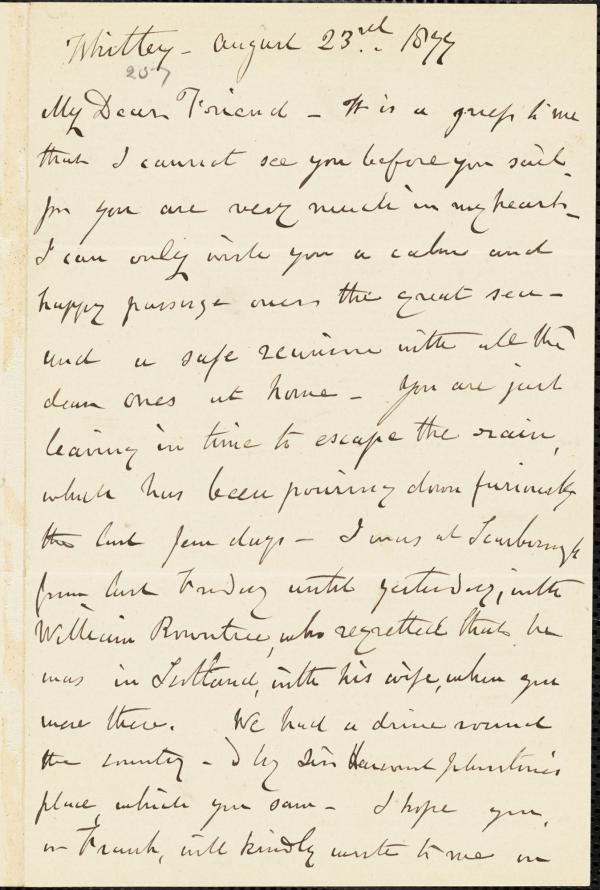 Whitley - August 23rd. 1877
207
My Dear Friend - It is a grief to me
that I cannot see you before you sail -
for you are very much in my heart -
I can only wish you a calm and
happy passage over the great sea -
and a safe reunion with all the
dear ones at home - You are just
leaving in time to escape the rain,
which has been pouring down furiously
the last few days - I was at Scarborough
from last Friday until yesterday, with
William Rowntree, who regretted that he
was in Scotland, with his wife, when you
were there. We had a drive round
the country - & by Sir Harcourt Johnstone's
place, which you saw - I hope you,
or Frank, will kindly write to me on